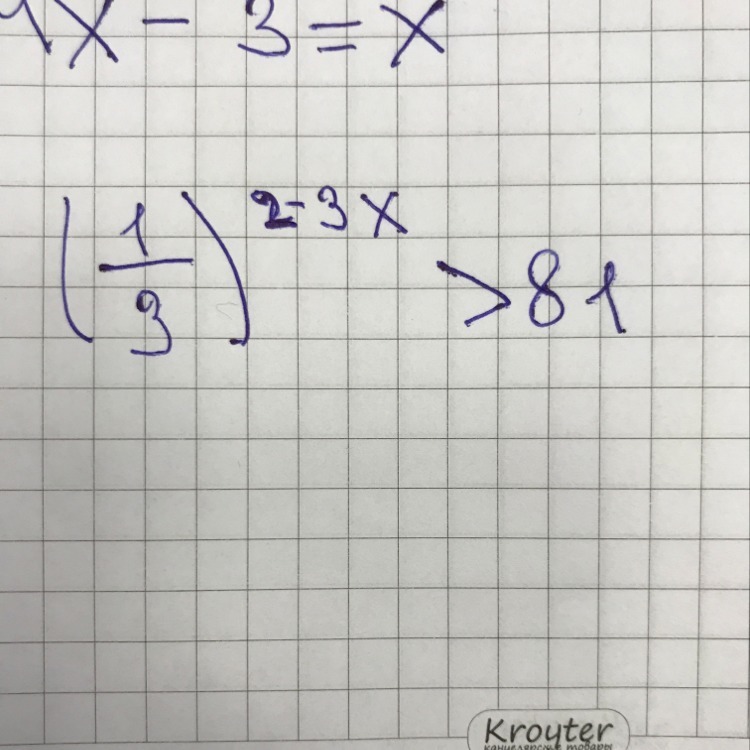 x - 3 = x
(1/3)^2-3x > 81
Kroyter
канцелярские товары